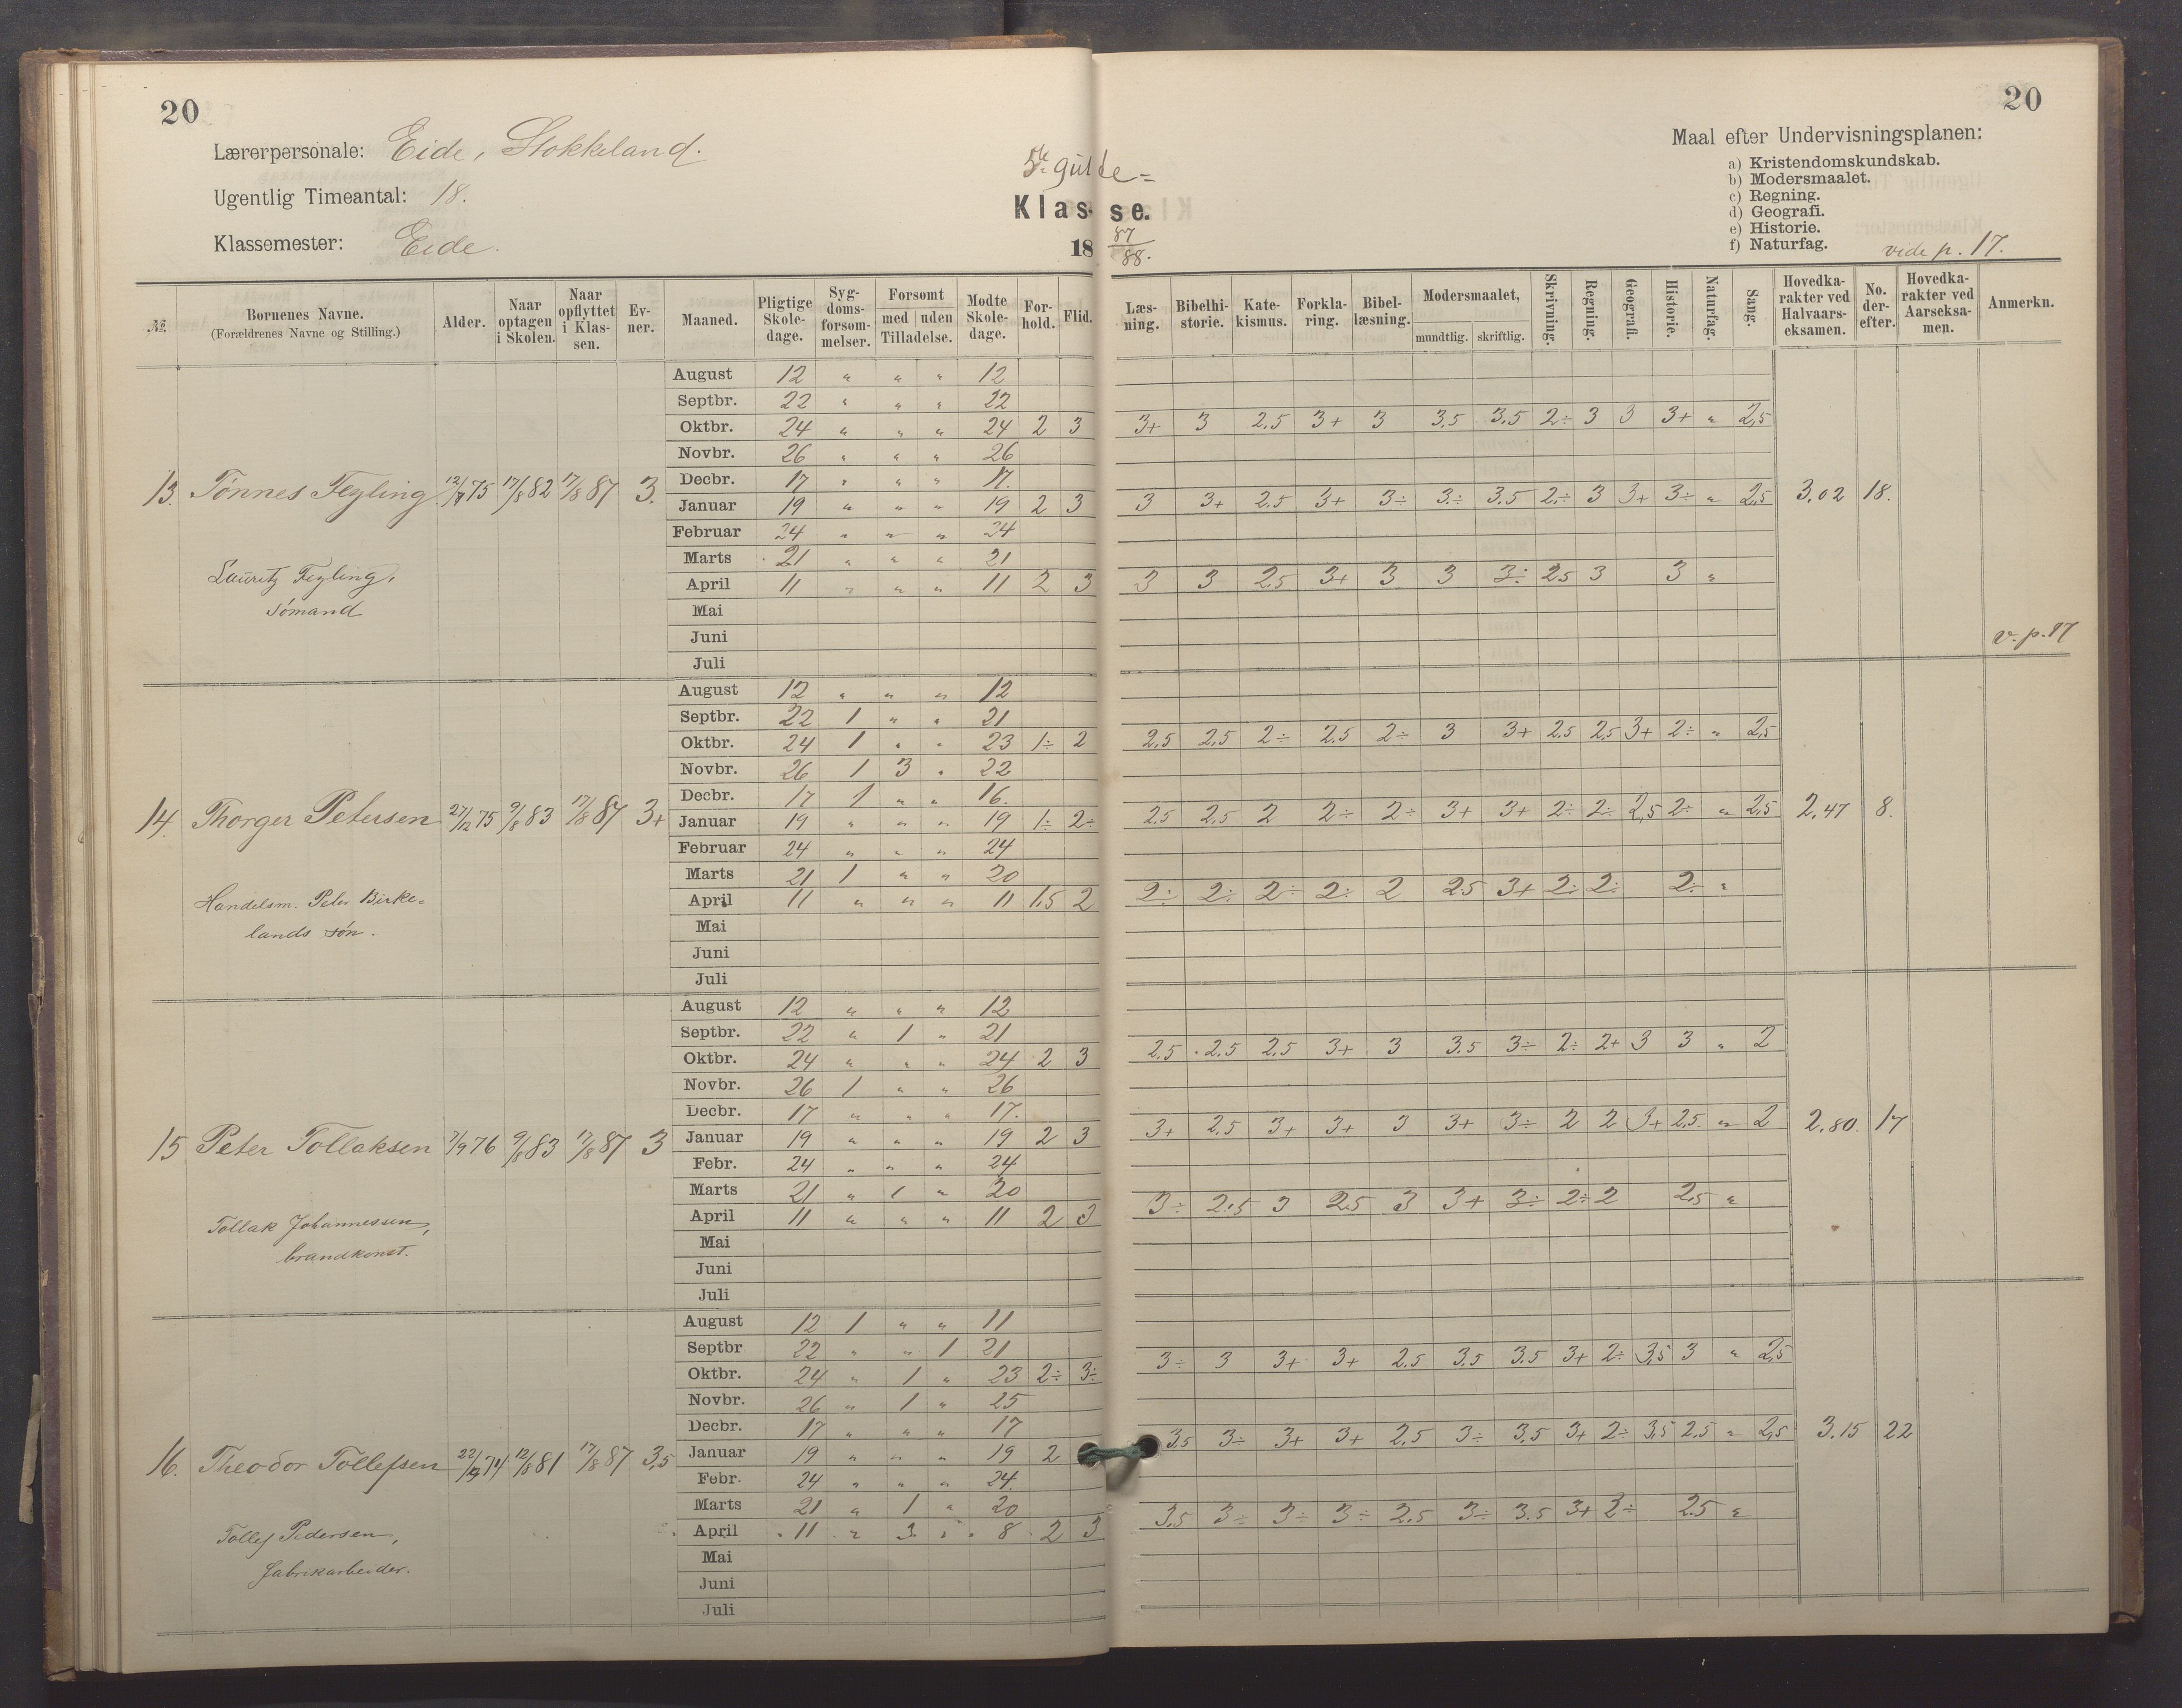 20
20
Lærerpersonale: Eide, Stokkeland.
Ugentlig Timeantal: 18.
Klassemester: Eide.
Klasse.
18 87/88.
Maal efter Undervisningsplanen:
a) Kristendomskundskab.
b) Modersmaalet.
c) Regning.
d) Geografi.
e) Historie.
f) Naturfag. vide p. 17.
№. Børnenes Navne. (Forældrenes Navne og Stilling.) Alder. Naar optagen i Skolen. Naar opflyttet i Klassen. Evner. Maaned. Pligtige Skoledage. Sygdomsforsømmelser. Forsømt med uden Tilladelse. Mødte Skoledage. Forhold. Flid. Læsning. Bibelhistorie. Katekismus. Forklaring. Bibellæsning. Modersmaalet, mundtlig. skriftlig. Skrivning. Regning. Geografi. Historie. Naturfag. Sang. Hovedkarakter ved Halvaarseksamen. No. derefter. Hovedkarakter ved Aarseksamen. Anmerkn.
August 12 " " " 12
Septbr. 22 " " " 22
Oktbr. 24 " " " 24 2 3 3+ 3 2.5 3+ 3 3.5 3.5 2÷ 3 3 3+ " 2,5
Novbr. 26 " " " 26
Decbr. 17 " " " 17.
13. Tønnes Feyling 17/8 82 17/8 87 3.
Januar 19 " " " 19 2 3 3 3+ 2.5 3+ 3÷ 3÷ 3.5 2÷ 3 3+ 3÷ " 2,5 3,02 18.
Februar 24 " " " 24
Marts 21 " " " 21
April 11 " " " 11 2 3 3 3 2.5 3+ 3 3 3÷ 2.5 3 3 "
Lauritz Feyling,
sømand
Mai
Juni
Juli
v. p. 17
August 12 " " " 12
Septbr. 22 1 " " 21
Oktbr. 24 1 " " 23 1÷ 2 2.5 2.5 2÷ 2.5 2÷ 3 3+ 2.5 2.5 3+ 2÷ " 2,5
Novbr. 26 1 3 " 22
Decbr. 17 1 " " 16.
14. Thorger Petersen 27/12 75 9/8 83 17/8 87 3+
Januar 19 " " " 19 1÷ 2÷ 2.5 2.5 2 2÷ 2÷ 3+ 3+ 2÷ 2÷ 2,5 2÷ " 2,5 2,47 8.
Februar 24 " " " 24
Marts 21 1 " " 20
April 11 " " " 11 1.5 2 2÷ 2÷ 2÷ 2÷ 2 2.5 3+ 2÷ 2÷ 2÷ "
Handelsm. Peter Birke=
lands søn.
Mai
Juni
Juli
August 12 " " " 12
Septbr. 22 " 1 " 21
Oktbr. 24 " " " 24 2 3 2.5 2.5 2.5 3+ 3 3.5 3÷ 2÷ 2+ 3 3 " 2
Novbr. 26 1 " " 26
Decbr. 17 " " " 17.
15 Peter Tollaksen 7/9 76 9/8 83 17/8 87 3
Januar 19 " " " 19 2 3 3+ 2.5 3+ 3+ 3 3+ 3÷ 2 2 3+ 2.5 " 2 2.80. 17
Febr. 24 " " " 24
Marts 21 " 1 " 20
April 11 " " " 11 2 3 3÷ 2.5 3 2.5 3 3+ 3÷ 2÷ 2 2.5 "
Tollak Johannessen,
brandkonst.
Mai
Juni
Juli
August 12 1 " " 11
Septbr 22 " " 1 21
Oktbr. 24 " 1 " 23 2÷ 3÷ 3÷ 3 3+ 3+ 2.5 3.5 3.5 3+ 2÷ 3,5 3 " 2,5
Novbr. 26 " 1 " 25
Decbr. 17 " " " 17
16. Theodor Tollefsen 12/8 81 17/8 87 3,5
Januar 19 " " " 19 2 3.5 3÷ 3+ 3+ 2.5 3÷ 3.5 3+ 2÷ 3,5 2.5 " 2,5 3.15 22
Febr. 24 " " " 24.
Marts 21 " 1 " 20
April 11 " 3 " 8 2 3 3.5 3÷ 3÷ 3÷ 2.5 3÷ 3.5 3+ 2÷ 2.5 "
Tollef Pedersen,
fabrikarbeider.
Mai
Juni
Juli